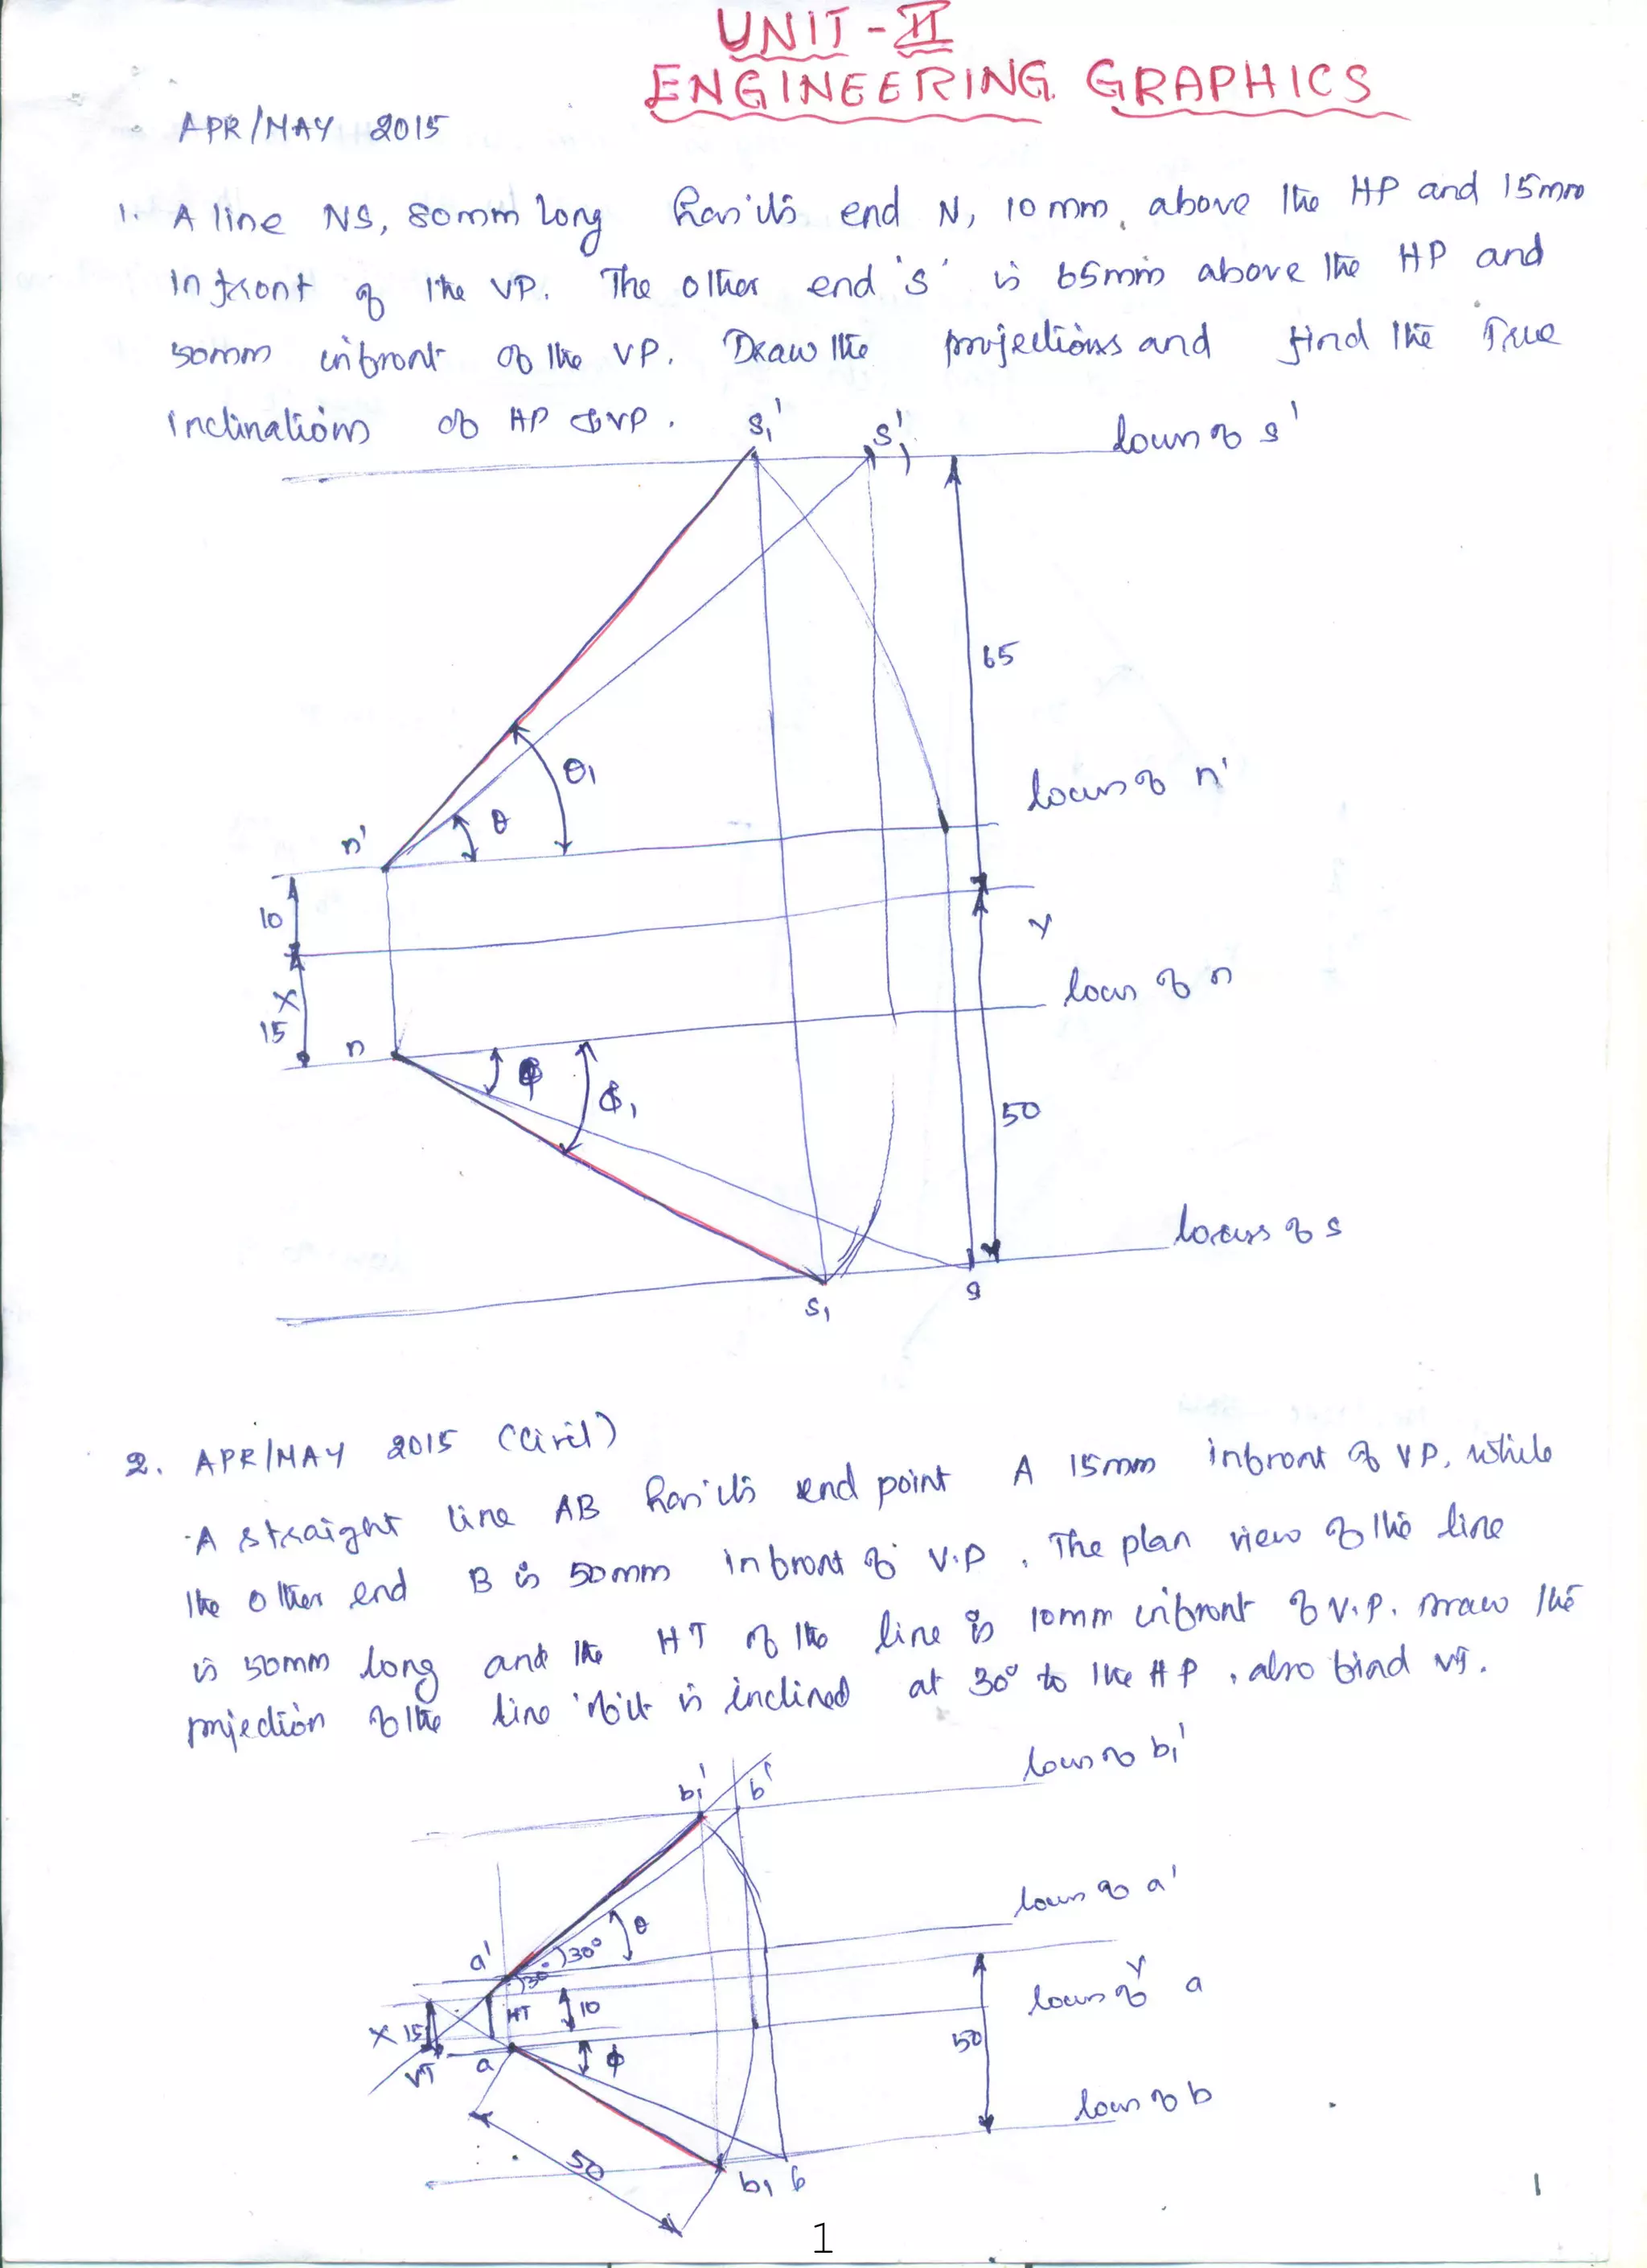 UNIT - II
ENGINEERING GRAPHICS
APR/MAY 2015
1. A line NS, 80mm long has its end N, 10 mm, above the HP and 15mm
infront of the VP. The other end 's' is 65mm above the HP and
50mm infront of the VP. Draw the projections and find the True
inclinations of HP & VP.
s1' s1' locus of s'
65
θ1
θ
locus of n'
n'
10
Y
X
locus of n
15
n
φ
φ1
50
locus of s
s
s1
2. APR/MAY 2015 (Civil)
A straight line AB has its end point A 15mm infront of VP, while
the other end B is 50mm infront of V.P. The plan view of the line
is 50mm long and the HT of the line is 10mm infront of V.P. Draw the
projection of the line if it is inclined at 30° to the HP, also find VT.
b1' b' locus of b1'
locus of a'
a' 30° 30° θ
Y
X 15 HT 10 locus of a
VT a φ 50
locus of b
50
b1 b
1
1